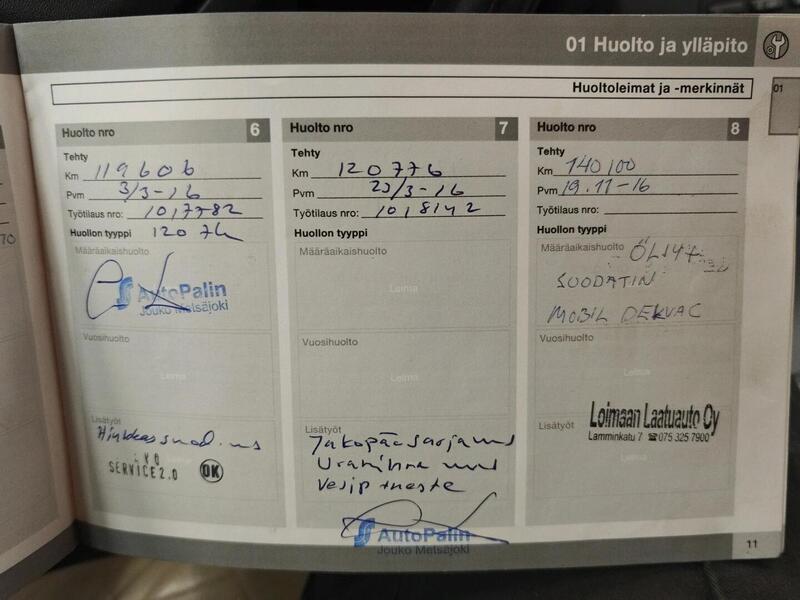 01 Huolto ja ylläpito
Huoltoleimat ja -merkinnät
01
Huolto nro 6
Tehty
Km 119606
Pvm 3/3-16
Työtilaus nro: 1017782
Huollon tyyppi 120 th
Määräaikaishuolto
AutoPalin
Jouko Metsäjoki
Vuosihuolto
Leima
Lisätyöt
SERVICE 2.0 OK
Huolto nro 7
Tehty
Km 120776
Pvm 23/3-16
Työtilaus nro: 1018142
Huollon tyyppi
Määräaikaishuolto
Leima
Vuosihuolto
Leima
Lisätyöt
Jakopääsarja uus
Urahihna uus
AutoPalin
Jouko Metsäjoki
Huolto nro 8
Tehty
Km 140100
Pvm 19.11-16
Työtilaus nro:
Huollon tyyppi
Määräaikaishuolto ÖLJY+
SUODATIN
MOBIL DEKVAC
Vuosihuolto
Leima
Lisätyöt
Loimaan Laatuauto Oy
Lamminkatu 7 ☎075 325 7900
Leima
11
70